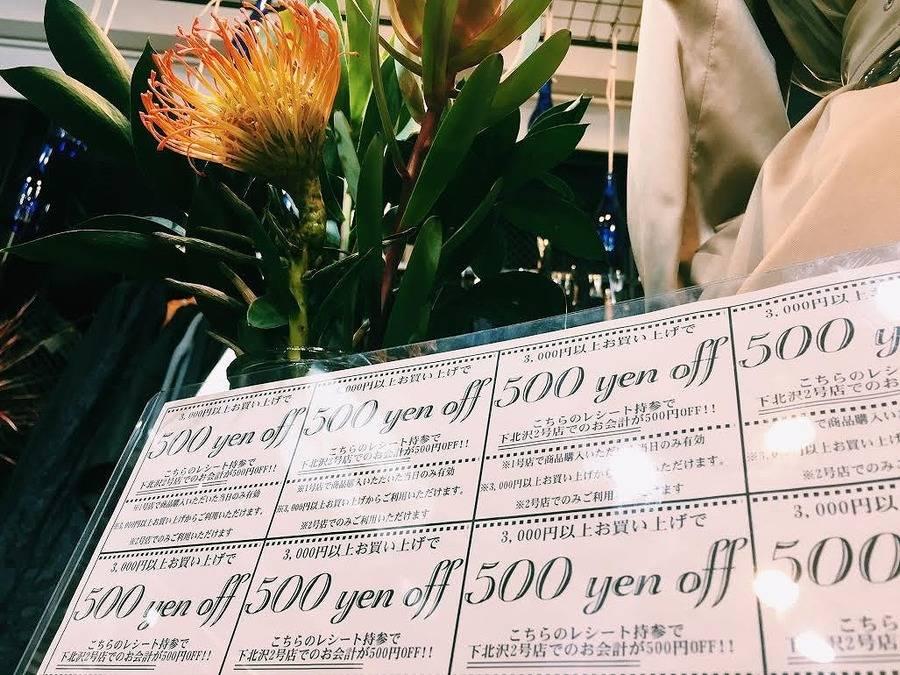 3,000円以上お買い上げで
500 yen off
こちらのレシート持参で
下北沢2号店でのお会計が500円OFF!!
※1号店で商品購入いただいた当日のみ有効
※3,000円以上お買い上げからご利用いただけます。
※2号店でのみご利用いただけます
,000円以上お買い上げで
500 yen off
こちらのレシート持参で
下北沢2号店でのお会計が500円OFF!!
※1号店で商品購入いただいた当日のみ有効
※3,000円以上お買い上げからご利用いただけます。
※2号店でのみご利用いただけます
3,000円以上お買い上げで
500 yen off
こちらのレシート持参で
下北沢2号店でのお会計が500円OFF!!
※1号店で商品購入いた 当日のみ有効
※3,000円以上お買い上げか いただけます。
※2号店でのみご利 ただけます
3,000円以上
500 y
こちらのレシ
下北沢2号店でのお
で商品購入い
円以上お買い上げ
※2号店でのみ
3,000円以上お買い上げで
500 yen off
こちらのレシート持参で
下北沢2号店でのお会計が500円OFF!!
3,000円以上お買い上げで
500 yen off
こちらのレシート持参で
下北沢2号店でのお会計が500円OFF!!
3,000円以上お買い上げで
500 yen off
こちらのレシート持参で
下北沢2号店でのお会計が500円OFF!!
3,000円以
500
こちらのレ
下 店での